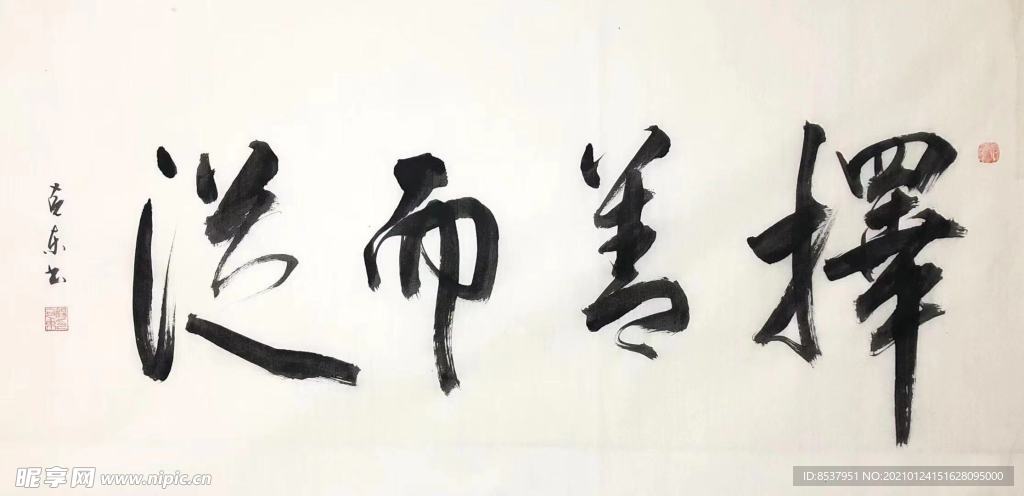 擇善而從
克东书
昵享网 www.nipic.cn
ID:8537951 NO:20210124151628095000